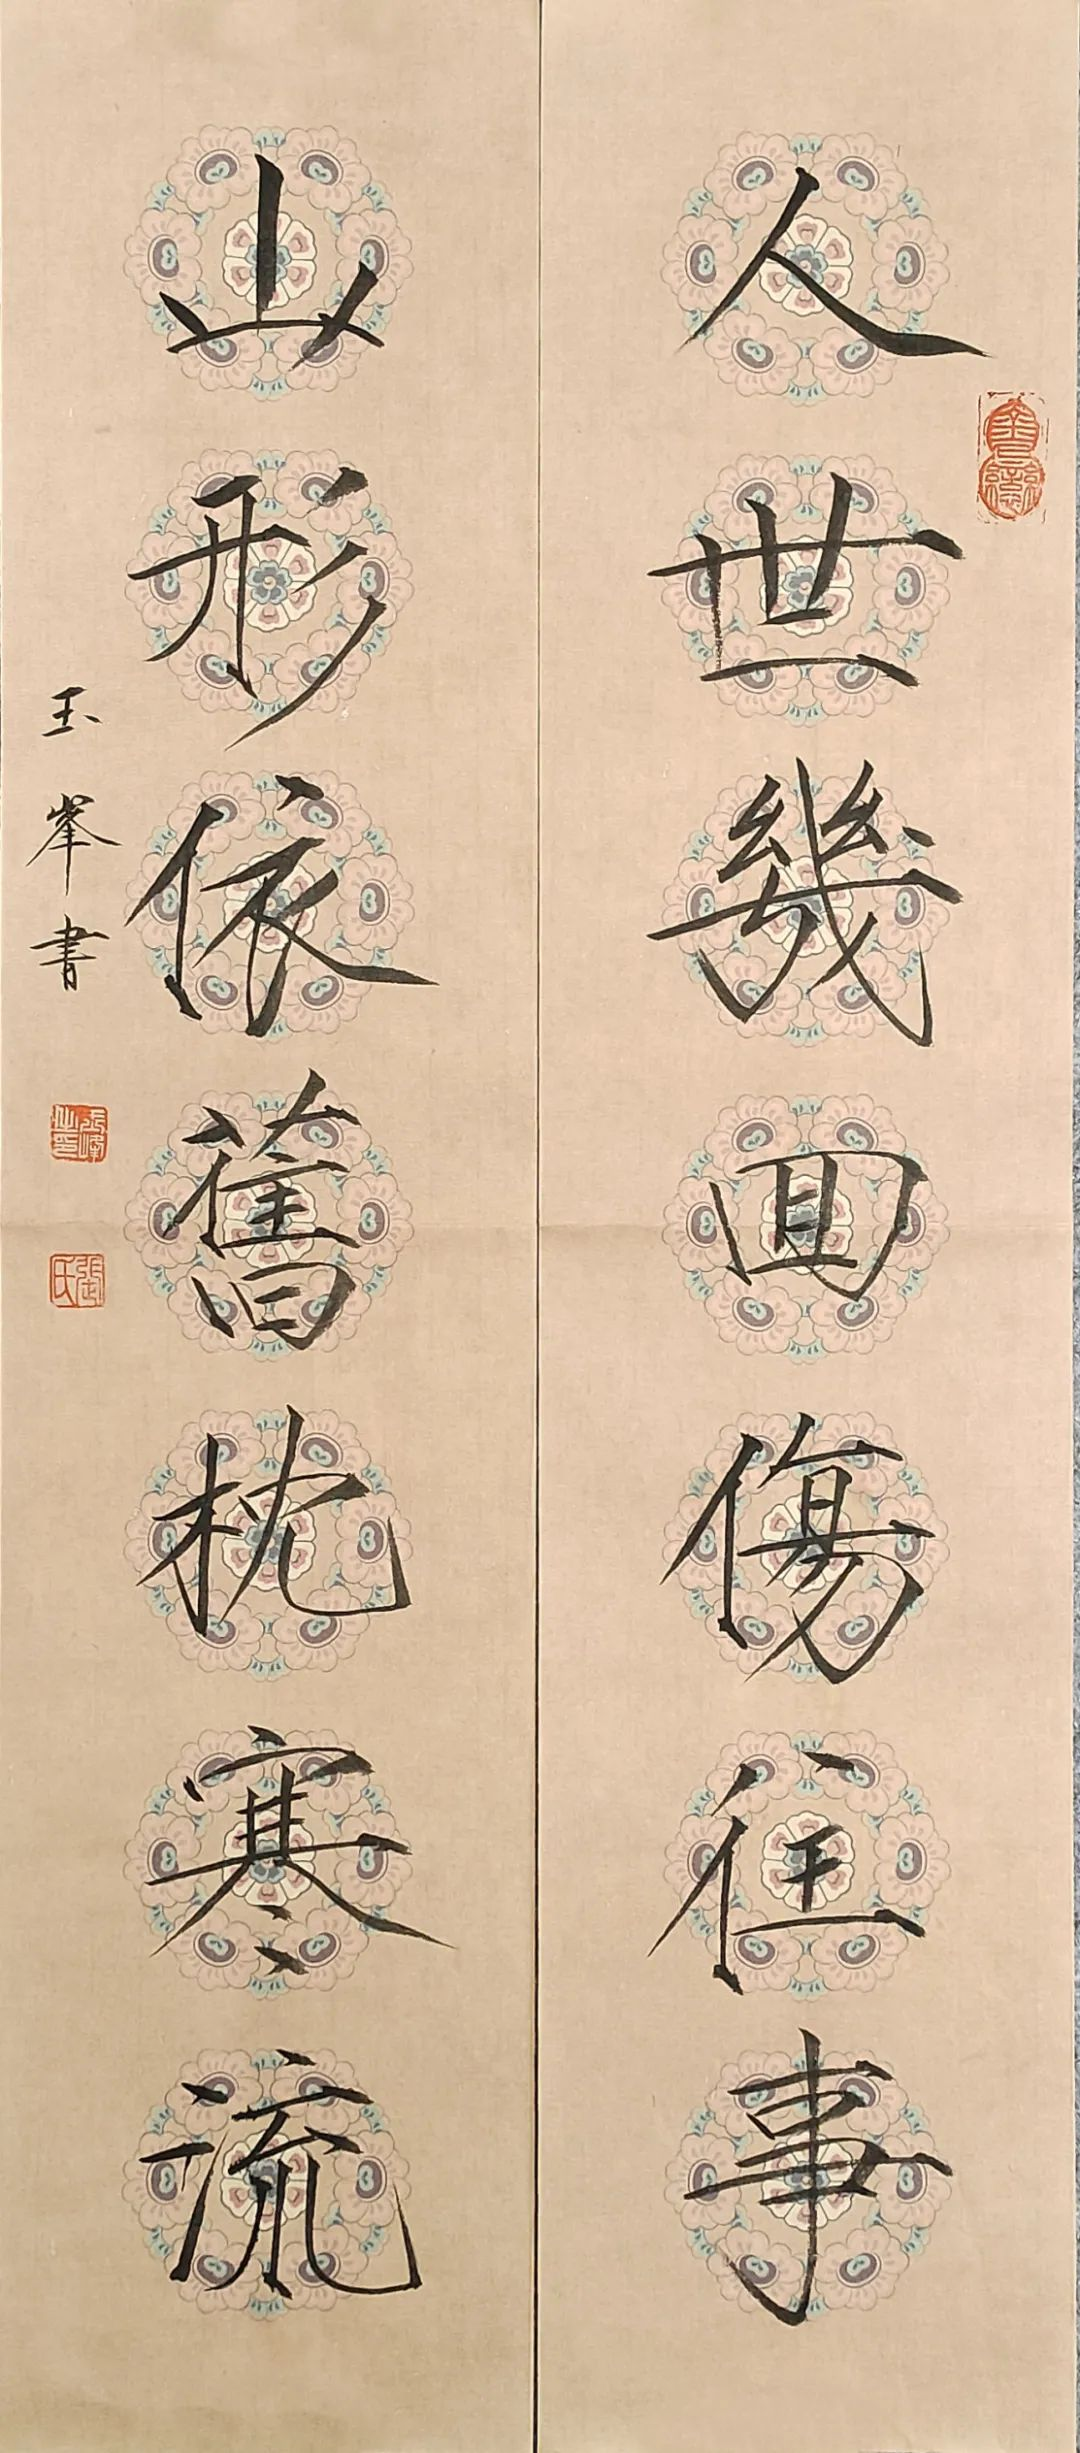 人世幾回傷往事
山形依舊枕寒流
玉峯書
張氏